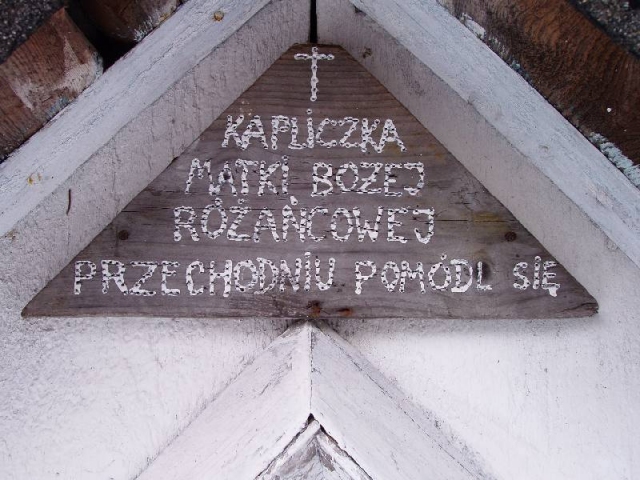 KAPLICZKA
MATKI BOŻEJ
RÓŻAŃCOWEJ
PRZECHODNIU POMÓDL SIĘ